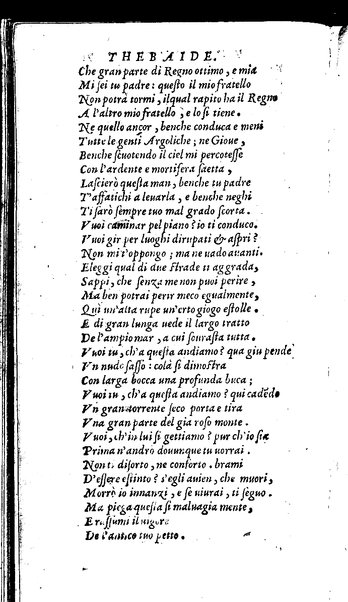 THEBAIDE.
Che gran parte di Regno ottimo, e mia
Mi sei tu padre: questo il mio fratello
Non potrà tormi, ilqual rapito ha il Regno
A l'altro mio fratello, e lo si tiene.
Ne quello ancor, benche conduca e meni
Tutte le genti Argoliche; ne Gioue,
Benche scuotendo il ciel mi percotesse
Con l'ardente e mortifera saetta,
Lascierò questa man, benche tu padre
T'affatichi a leuarla, e benche neghi
Ti sarò sempre tuo mal grado scorta.
Vuoi caminar pel piano? io ti conduco.
Vuoi gir per luoghi dirupati & aspri?
Non mi t'oppongo; ma ne uado auanti.
Eleggi qual di due strade ti aggrada,
Sappi, che senza me non puoi perire,
Ma ben potrai perir meco egualmente,
Qui un'alta rupe un'erto giogo estolle.
E di gran lunga uede il largo tratto
De l'ampio mar, a cui sourasta tutta.
Vuoi tu, ch'a questa andiamo? qua giu pende
Vn nudo sasso: colà si dimostra
Con larga bocca una profonda buca;
Vuoi tu, ch'a questa andiamo? qui cadēdo
Vn gran torrente seco porta e tira
Vna gran parte del gia roso monte.
Vuoi, ch'in lui si gettiamo? pur ch'io sia
Prima n'andrò douunque tu uorrai.
Non ti disorto, ne conforto. brami
D'essere estinto? s'egli auien, che muori,
Morrò io innanzi, e se uiurai, ti seguo.
Ma piega questa sì maluagia mente,
E rassumi il uigore
De l'antico tuo petto.